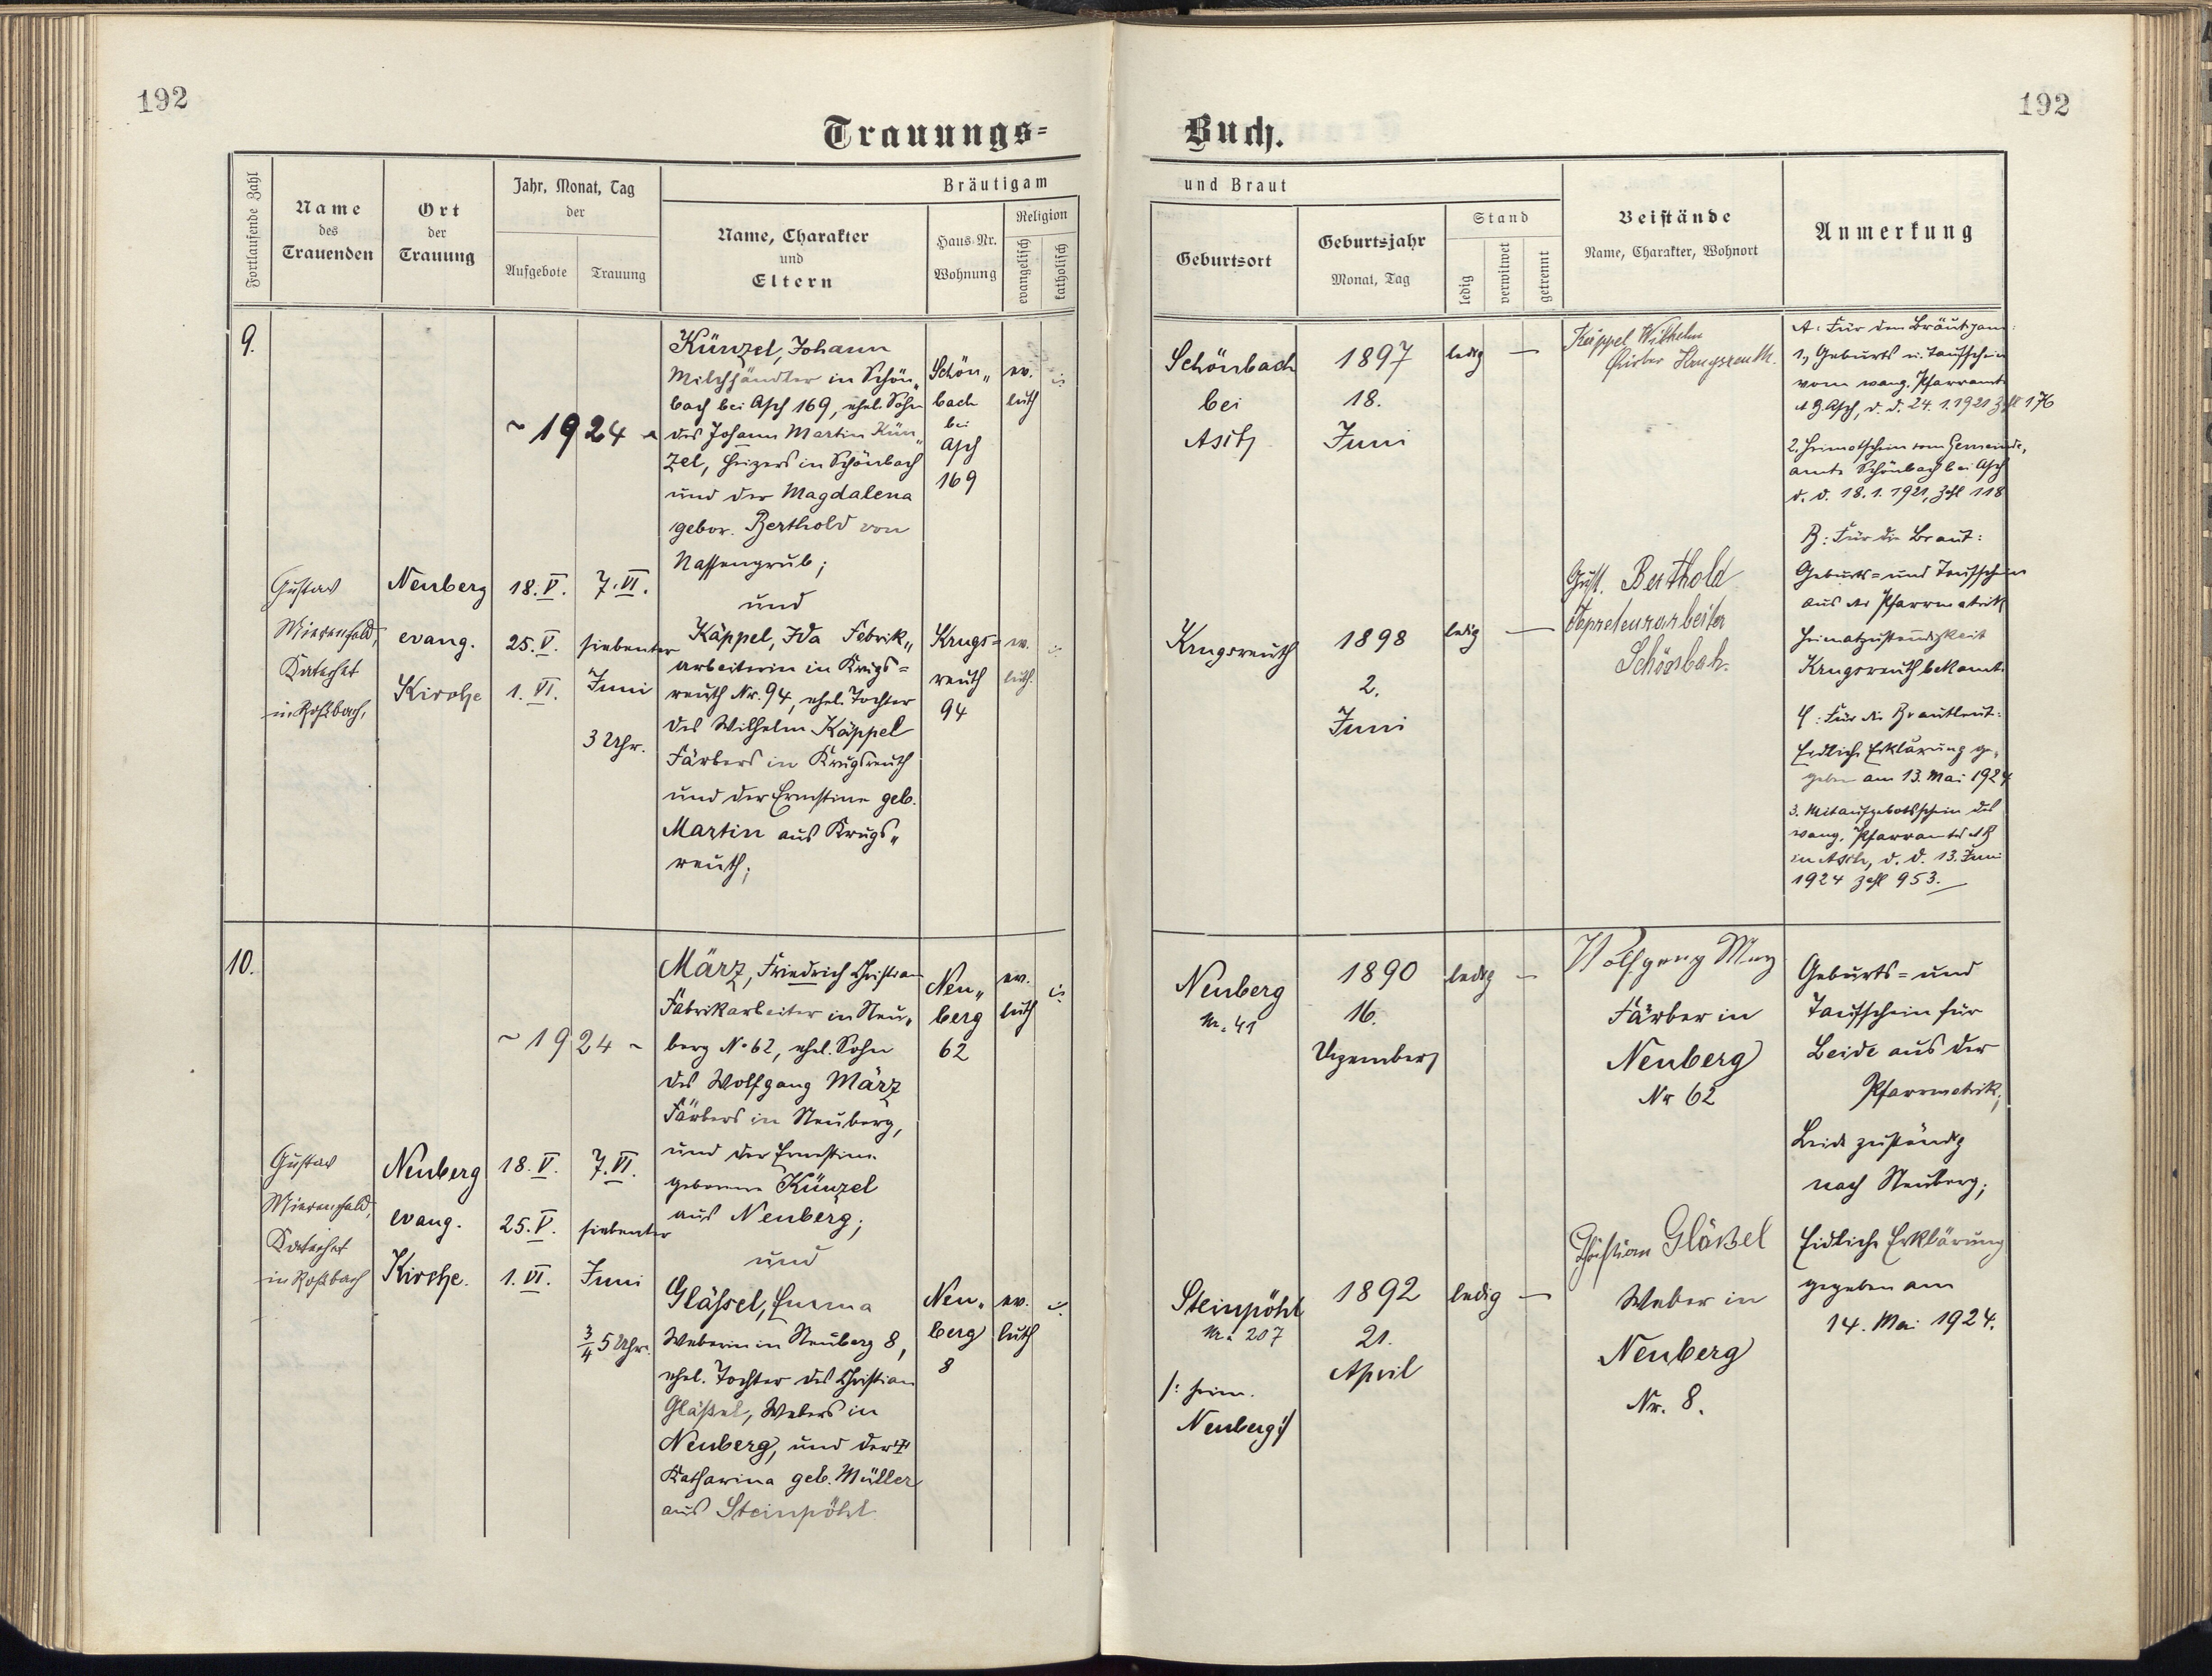 192
192
Trauungs=
Buch.
Fortlaufende Zahl
Name
des
Trauenden
Ort
der
Trauung
Jahr, Monat, Tag
der
Aufgebote
Trauung
Bräutigam
Name, Charakter
und
Eltern
Haus-Nr.
Wohnung
Religion
evangelisch
katholisch
und Braut
Geburtsort
Geburtsjahr
Monat, Tag
Stand
ledig
verwitwet
getrennt
Beistände
Name, Charakter, Wohnort
Anmerkung
9.
Gustav
Katechet
in Roßbach,
Neuberg
evang.
Kirche
~ 1924 ~
18. V.
25. V.
1. VI.
7. VI.
siebenter
Juni
3 Uhr.
Künzel, Johann
Milchhändler in Schön„
bach bei Asch 169, ehel. Sohn
des Johann Martin Kün„
zel, Heizers in Schönbach
und der Magdalena
gebor. Berthold von
Nassengrub;
und
Käppel, Ida Fabrik„
arbeiterin in Krugs=
reuth Nr. 94, ehel. Tochter
des Wilhelm Käppel
Färbers in Krugsreuth
und der Ernstine geb.
Martin aus Krugs„
reuth;
Schön„
bach
bei
Asch
169
ev.
luth
Krugs=
reuth
94
ev.
luth.
Schönbach
bei
Asch
1897
18.
Juni
ledig —
Krugsreuth
1898
2.
Juni
ledig —
Käppel Wilhelm
Färber Krugsreuth.
Gust. Berthold
Schönbach.
A: Für den Bräutigam:
1, Geburts u. Taufschein
vom evang. Pfarramte
A B Asch, d. d. 24. 1. 1921 Zahl 176
2. Heimatschein vom Gemeinde„
amte Schönbach bei Asch
d. d. 18. 1. 1921, Zahl 118
B: Für die Braut:
Geburts= und Taufschein
aus der Pfarrmatrik
Heimatzuständigkeit
Krugsreuth bekannt.
C: Für die Brautleute:
Eidliche Erklärung ge„
geben am 13. Mai 1924
3. Mitaufgebotsschein des
evang. Pfarramtes A B
in Asch, d. d. 13. Juni
1924 Zahl 953.
10.
Gustav
Katechet
in Roßbach
Neuberg
evang.
Kirche.
~ 1924 ~
18. V.
25. V.
1. VI.
7. VI.
siebenter
Juni
3/4 5 Uhr.
März, Friedrich Christian
Fabrikarbeiter in Neu„
berg No 62, ehel. Sohn
des Wolfgang März
Färbers in Neuberg,
und der Ernestine
geborene Künzel
aus Neuberg;
und
Gläßel, Emma
Weberin in Neuberg 8,
ehel. Tochter des Christian
Gläßel, Webers in
Neuberg, und der ‡
Katharina geb. Müller
aus Steinpöhl
Neu„
berg
62
ev.
luth
Neu„
berg
8
ev.
luth
Neuberg
Nr. 41
1890
16.
Dezember
ledig —
Steinpöhl
Nr. 207
/: heim.
Neuberg :/
1892
21.
April
ledig —
Wolfgang
Färber in
Neuberg
Nr 62
Christian Gläßel
Weber in
Neuberg
Nr. 8.
Geburts= und
Taufschein für
Beide aus der
Pfarrmatrik;
Beide zuständig
nach Neuberg;
Eidliche Erklärung
gegeben am
14. Mai 1924.